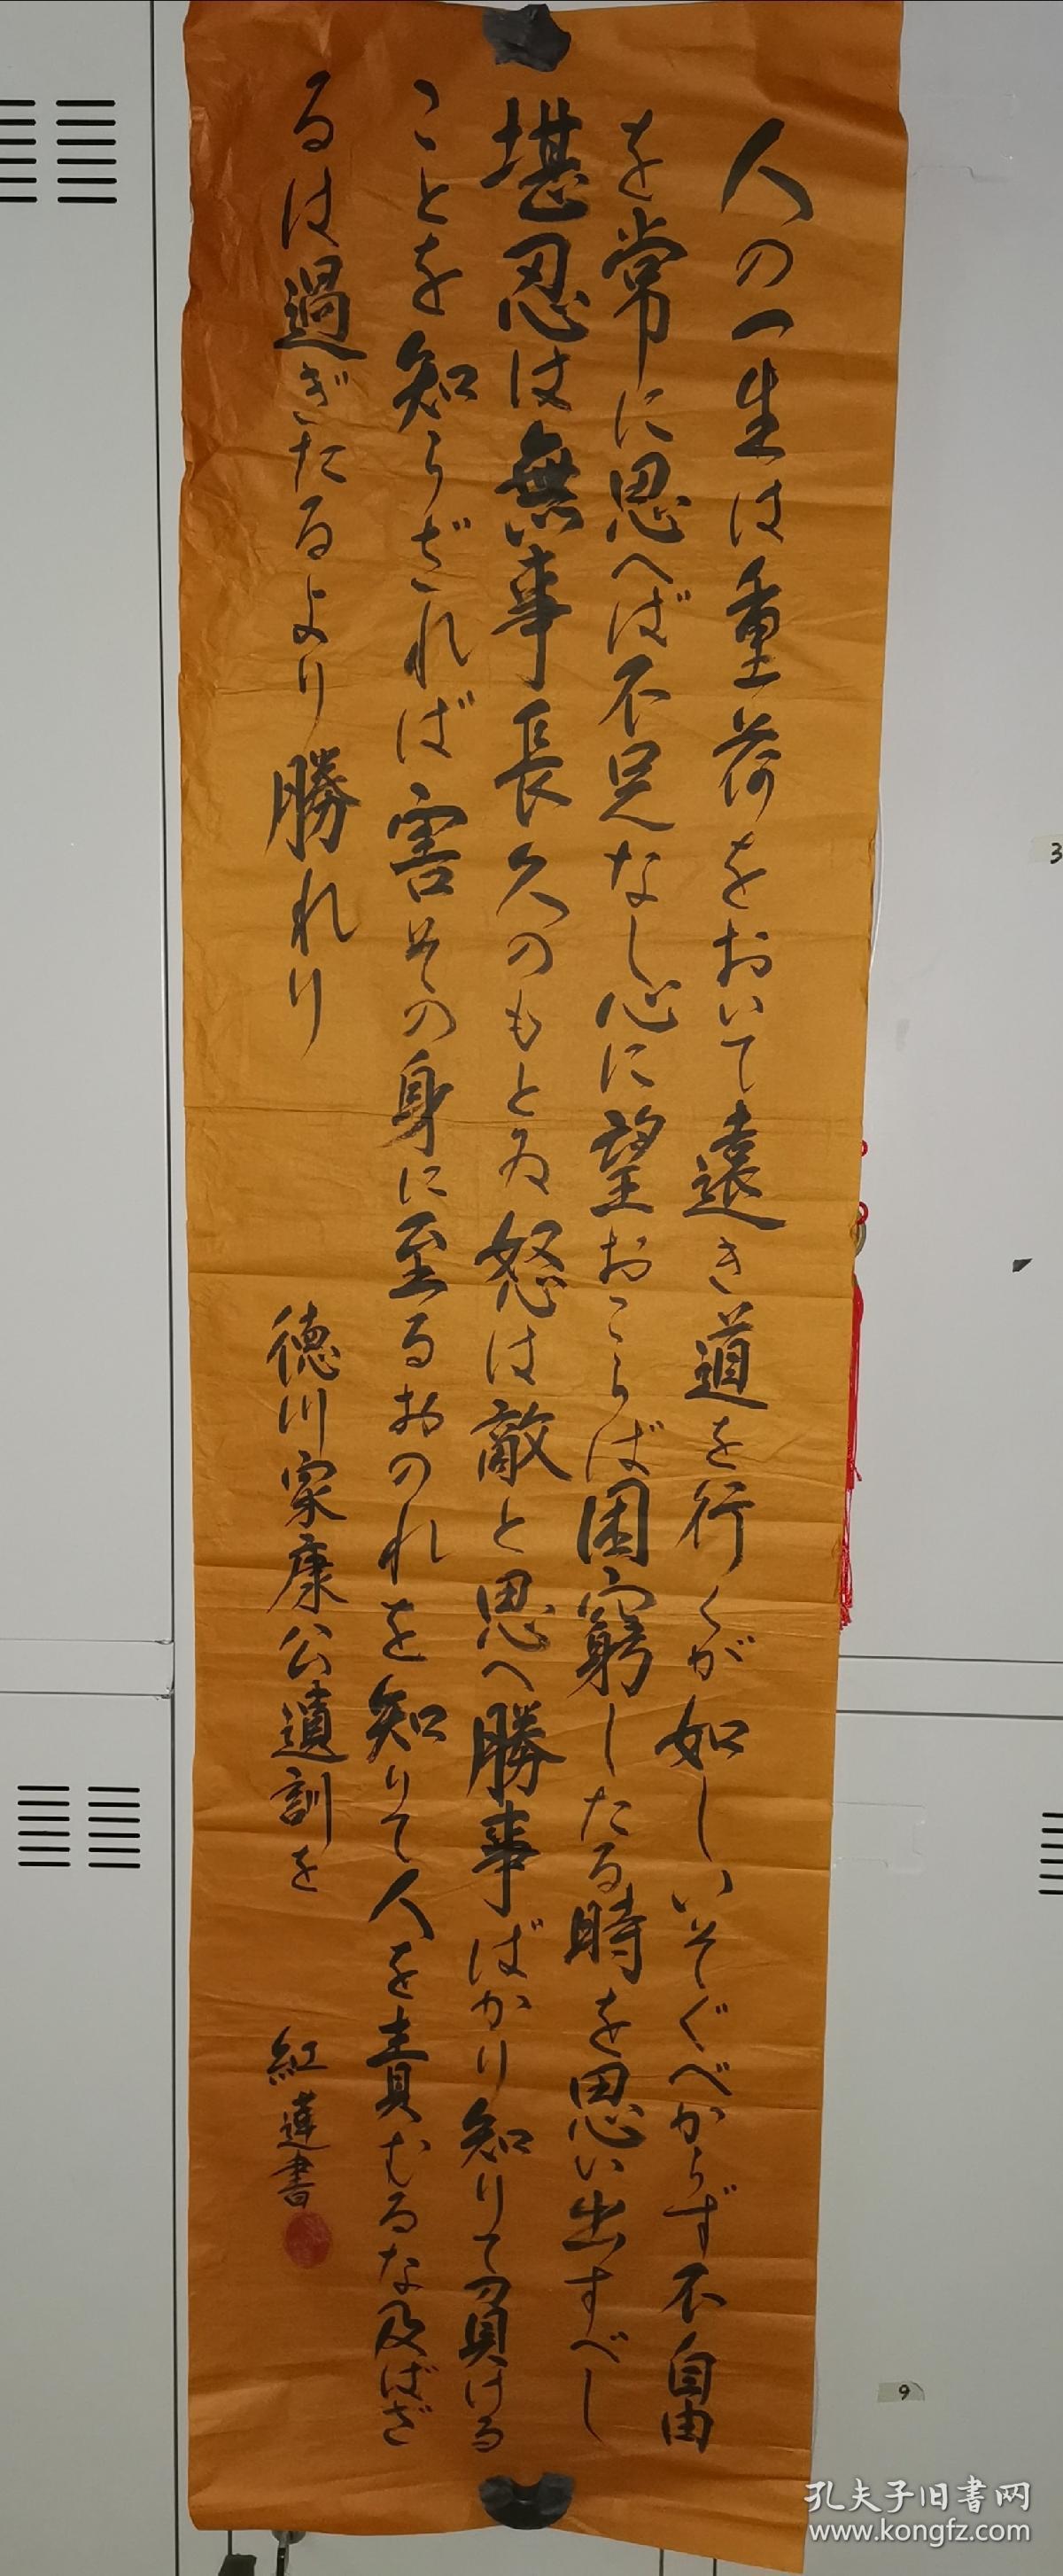 人の一生は重荷をおいて遠き道を行くが如しいそぐべからず不自由
を常に思へば不足なし心に望おこらば困窮したる時を思い出すべし
堪忍は無事長久のもとゐ怒は敵と思へ勝事ばかり知りて負ける
ことを知らざれば害その身に至るおのれを知りて人を責むるな及ばざ
るは過ぎたるより勝れり
徳川家康公遺訓を
紅蓮書
3
9
孔夫子旧書网
www.kongfz.com